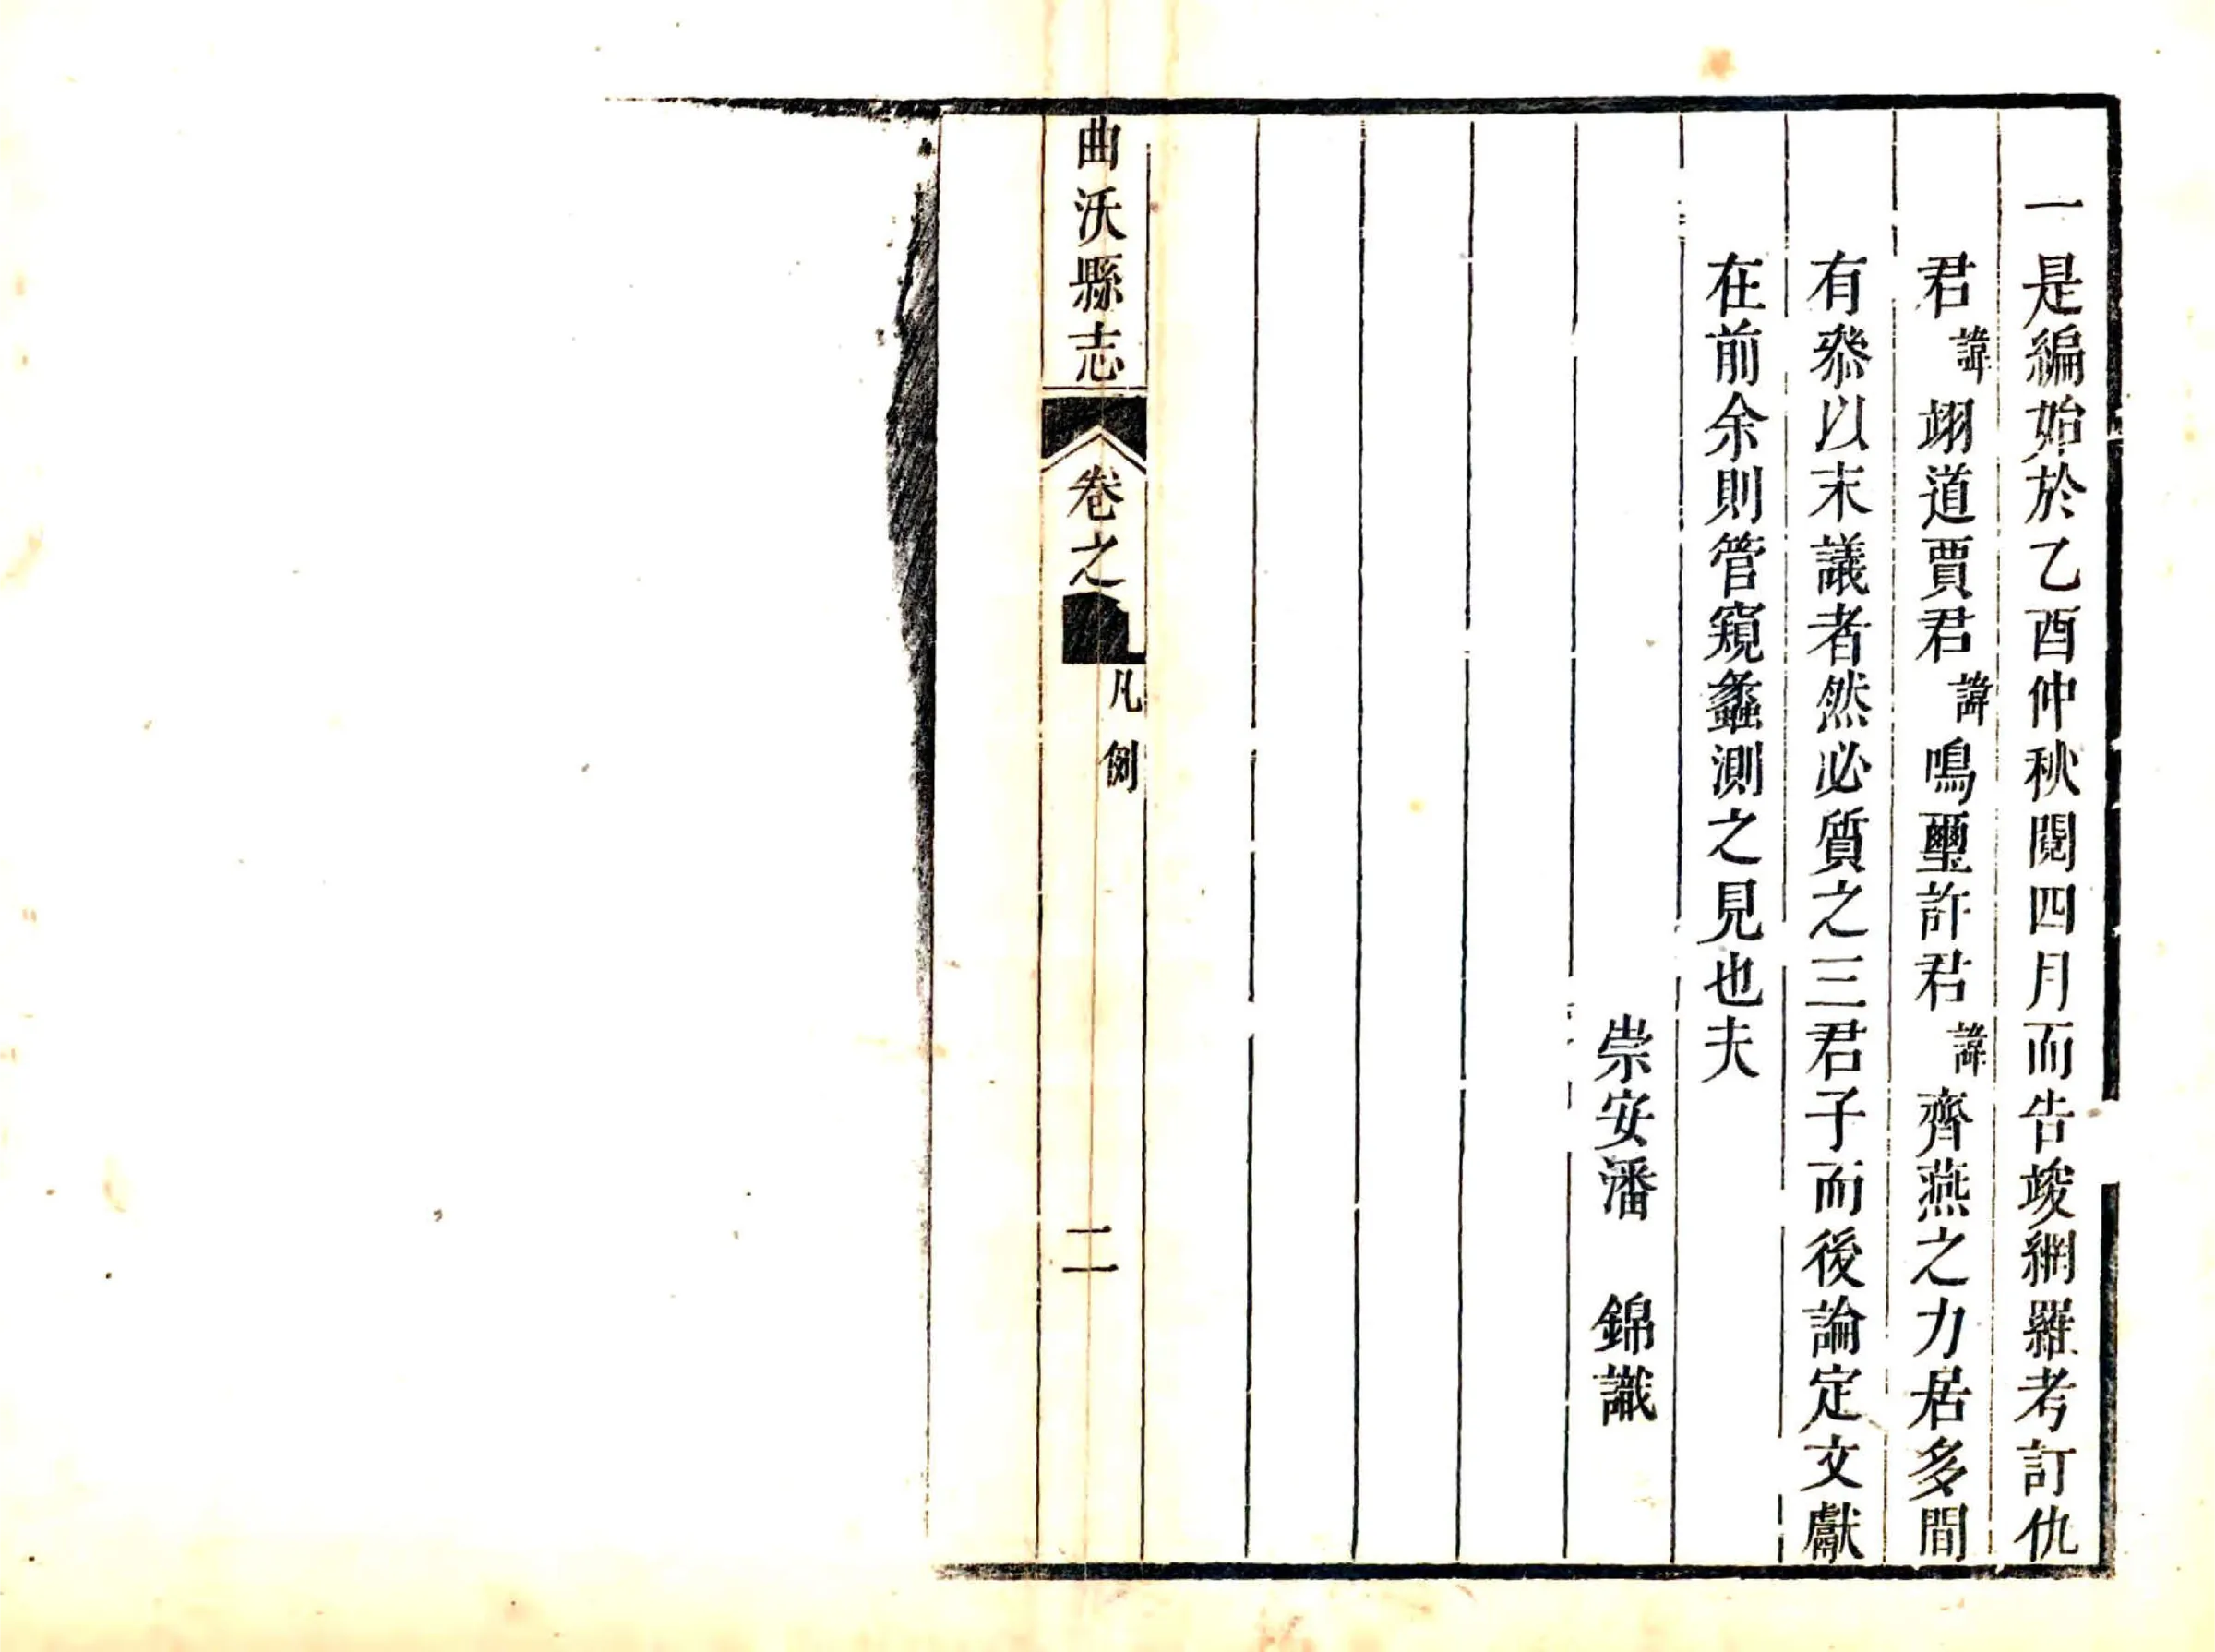 一是編始於乙酉仲秋閱四月而告竣網羅考訂仇
君諱翊道賈君諱鳴璽許君諱齊燕之力居多間
有叅以末議者然必質之三君子而後論定文獻
在前余則管窺蠡測之見也夫
崇安潘　錦識
曲沃縣志
卷之
凡例
二